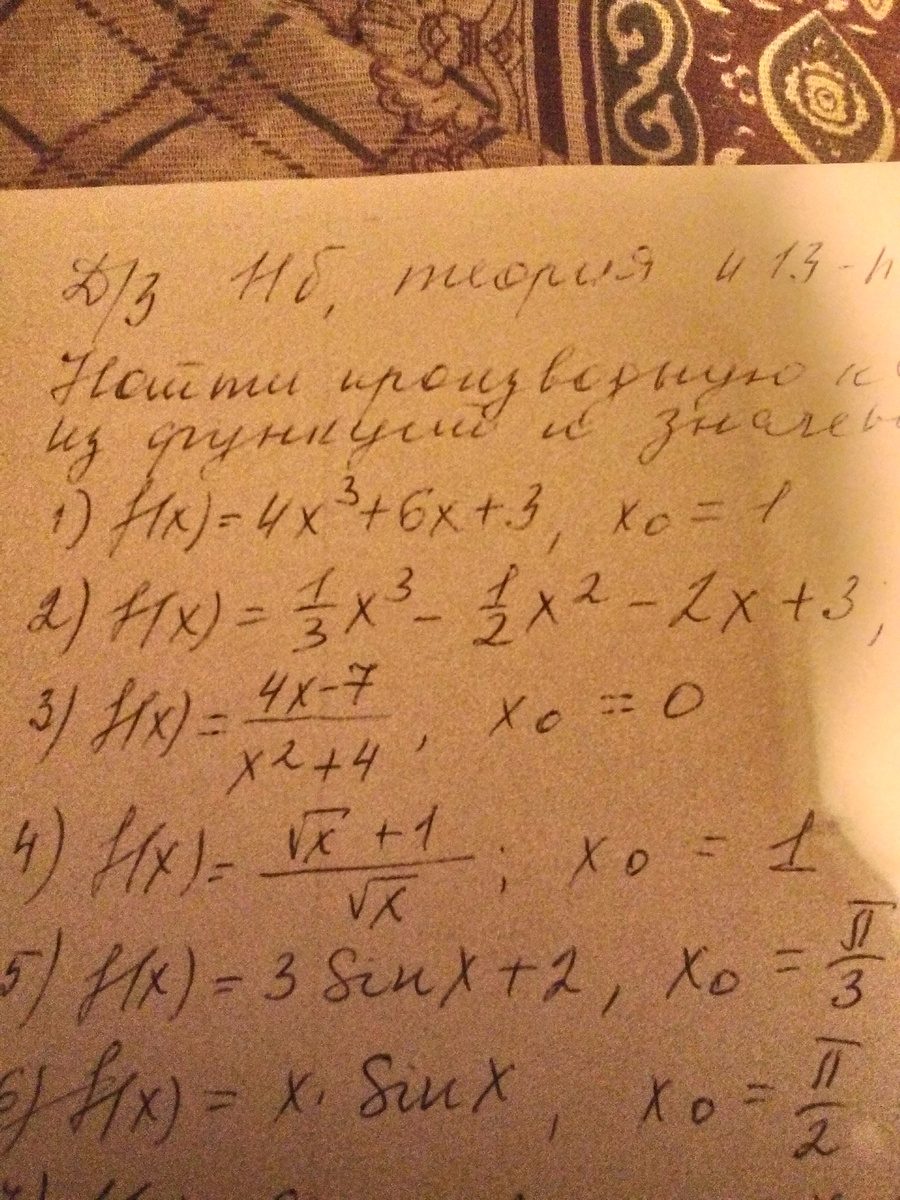 Д/з Нб, теория и 13-
Найти производную
из функций и значе
1) f(x) = 4x³+6x+3, x₀ = 1
2) f(x) = 1/3 x³ - 1/2 x² - 2x + 3;
3) f(x) = (4x-7)/(x²+4), x₀ = 0
4) f(x) = (√x + 1)/√x ; x₀ = 1
5) f(x) = 3 sin x + 2, x₀ = π/3
6) f(x) = x · sin x, x₀ = π/2